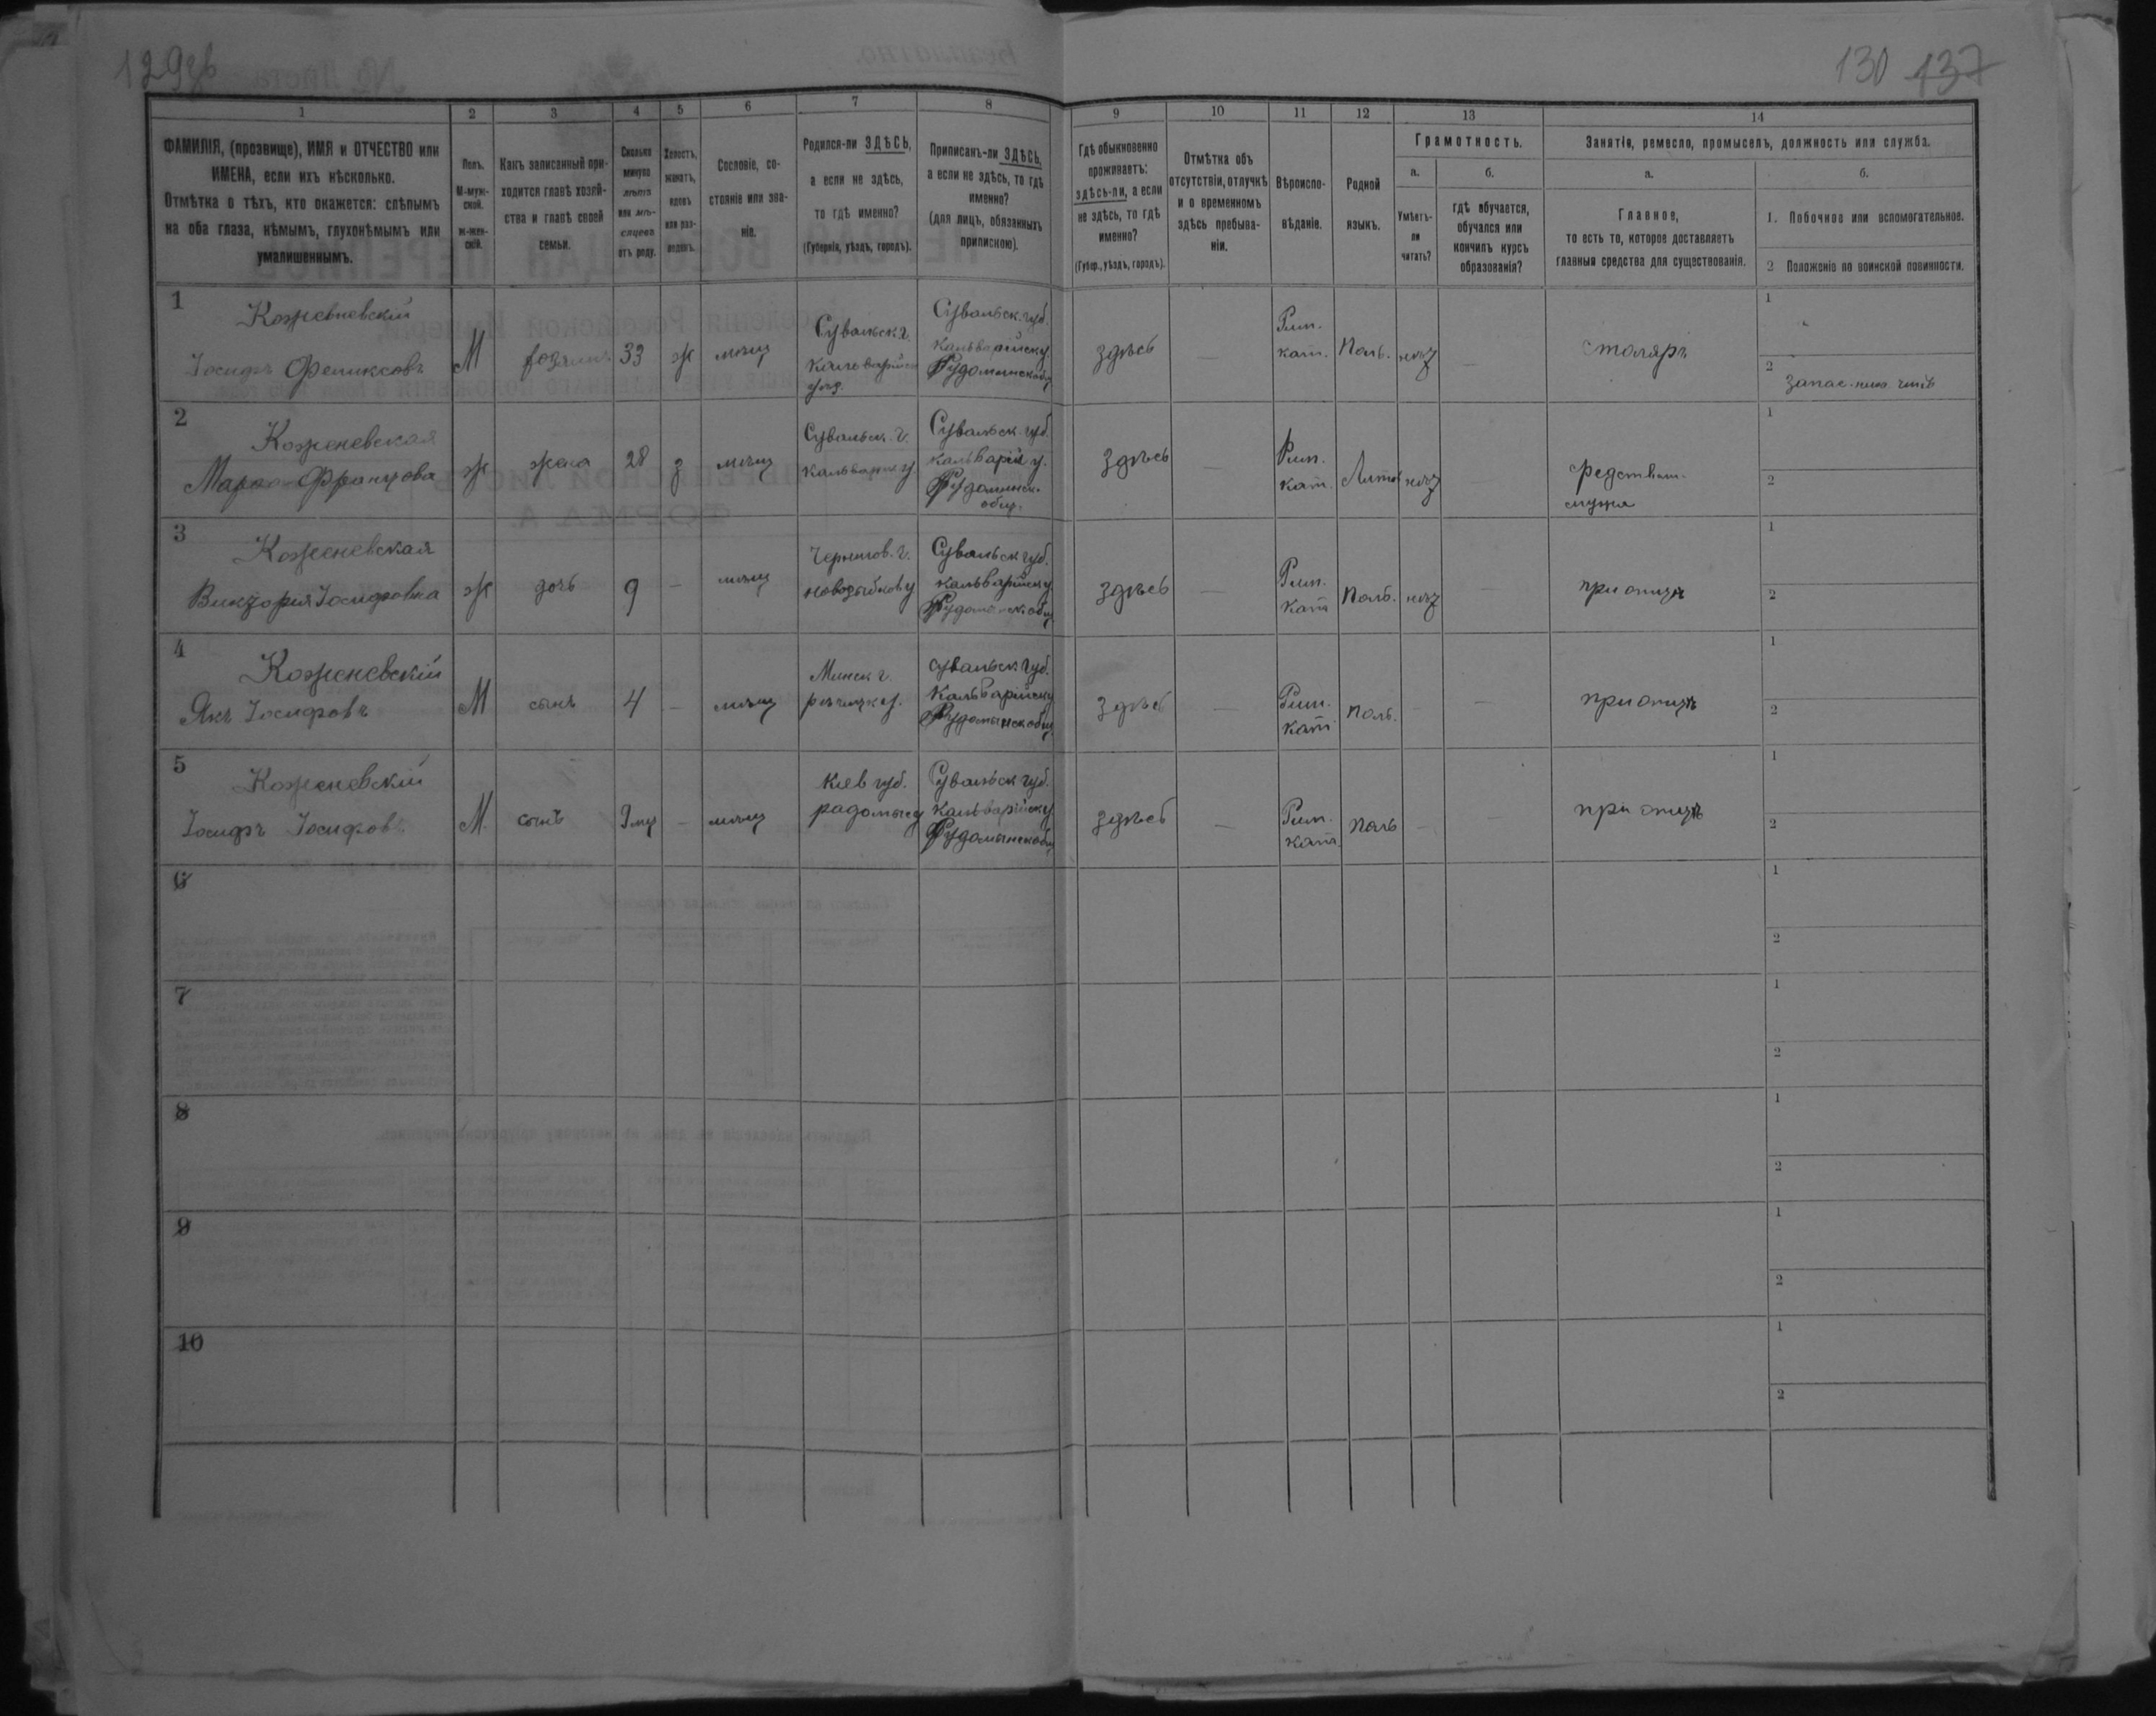 129об
130 137
1
2
3
4
5
6
7
8
9
10
11
12
13
14
ФАМИЛІЯ, (прозвище), ИМЯ и ОТЧЕСТВО или
ИМЕНА, если ихъ нѣсколько.
Отмѣтка о тѣхъ, кто окажется: слѣпымъ
на оба глаза, нѣмымъ, глухонѣмымъ или
умалишеннымъ.
Полъ.
М-муж-
ской.
ж-жен-
скій.
Какъ записанный при-
ходится главѣ хозяй-
ства и главѣ своей
семьи.
Сколько
минуло
лѣтъ
или мѣ-
сяцевъ
отъ роду.
Холостъ,
женатъ,
вдовъ
или раз-
веденъ.
Сословіе, со-
стояніе или зва-
ніе.
Родился-ли ЗДѢСЬ,
а если не здѣсь,
то гдѣ именно?
(Губернія, уѣздъ, городъ).
Приписанъ-ли ЗДѢСЬ,
а если не здѣсь, то гдѣ
именно?
(для лицъ, обязанныхъ
припискою).
Гдѣ обыкновенно
проживаетъ:
здѣсь-ли, а если
не здѣсь, то гдѣ
именно?
(Губер., уѣздъ, городъ).
Отмѣтка объ
отсутствіи, отлучкѣ
и о временномъ
здѣсь пребыва-
ніи.
Вѣроиспо-
вѣданіе.
Родной
языкъ.
Грамотность.
а.
Умѣетъ-
ли
читать?
б.
гдѣ обучается,
обучался или
кончилъ курсъ
образованія?
Занятіе, ремесло, промыселъ, должность или служба.
а.
Главное,
то есть то, которое доставляетъ
главныя средства для существованія.
б.
1. Побочное или вспомогательное.
2 Положеніе по воинской повинности.
1
Кожевневскій
Іосифъ Феликсовъ
М
хозяинъ
33
ж
мѣщ
Сувалкск г.
Кальварійск
уѣзд.
Сувальск. губ.
Кальварійск у.
Рудоминск общ
здѣсь
—
Рим.
кат.
Поль.
нѣт
—
столяръ
1
2
запас. ниж. чинъ
2
Коженевская
Францова
ж
жена
28
з
мѣщ
Сувальск. г.
Кальварск у
Сувальск. губ.
Кальварій у.
Рудоминск.
общ.
здѣсь
—
Рим.
кат.
Литов
нѣт
средствам.
мужа
1
2
3
Коженевская
Викторія Іосифовна
ж
дочь
9
—
мѣщ
Чернигов. г.
новозыбков у
Сувальск губ.
Кальварійск у
Рудоминск общ
здѣсь
—
Рим.
Кат
Поль.
нѣт
—
при отцѣ
1
2
4
Коженевскій
Янъ Іосифовъ
М
сынъ
4
—
мѣщ
Минск г.
рѣчицк у.
Сувальск губ.
Кальварійск у
Рудоминск общ
здѣсь
—
Рим.
Кат
Поль.
—
—
при отцѣ
1
2
5
Коженевскій
Іосифъ Іосифовъ
М.
сынъ
—
мѣщ
Киев губ.
радомыс у
Сувальск губ.
Кальварійск у
Рудоминск общ
здѣсь
—
Рим.
кат.
Поль
—
—
при отцѣ
1
2
6
1
2
7
1
2
8
1
2
9
1
2
10
1
2